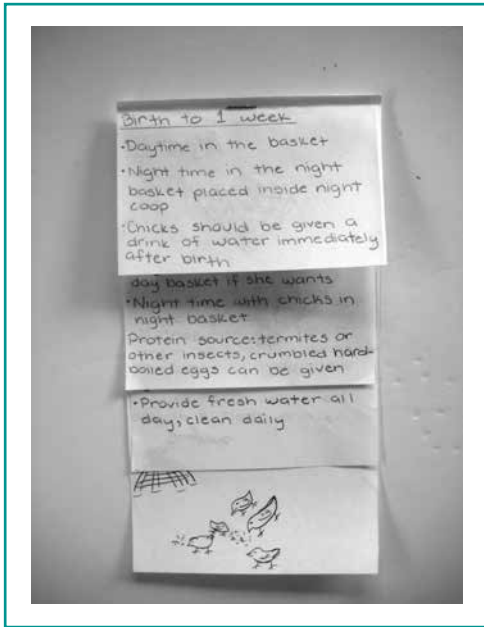 Birth to 1 week
•Daytime in the basket
•Night time in the night
basket placed inside night
coop
•Chicks should be given a
drink of water immediately
after birth
day basket if she wants
•Night time with chicks in
night basket
Protein source: termites or
other insects, crumbled hard-
boiled eggs can be given
•Provide fresh water all
day, clean daily